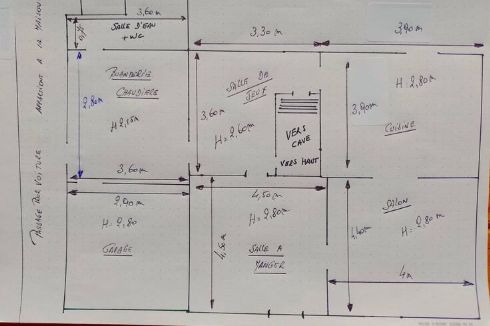 PASSAGE POUR VOITURE APPARTIENT A LA MAISON
3,60m
SALLE D'EAU
+WC
3,30m
3,90m
BUANDERIE
CHAUDIERE
2,80m
H 2,25m
SALLE DE
JEUX
3,60m
H=2,60m
VERS
CAVE
VERS HAUT
H=2,80m
3,90m
CUISINE
3,60m
2,90m
H=2,80
GARAGE
4,50m
H=2,80m
4,50m
SALLE A
MANGER
SALON
H=2,80m
4,40m
4m